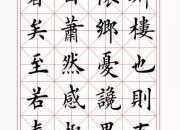 斯樓也則有
懷鄉憂讒畏
目蕭然感極
者矣至若春